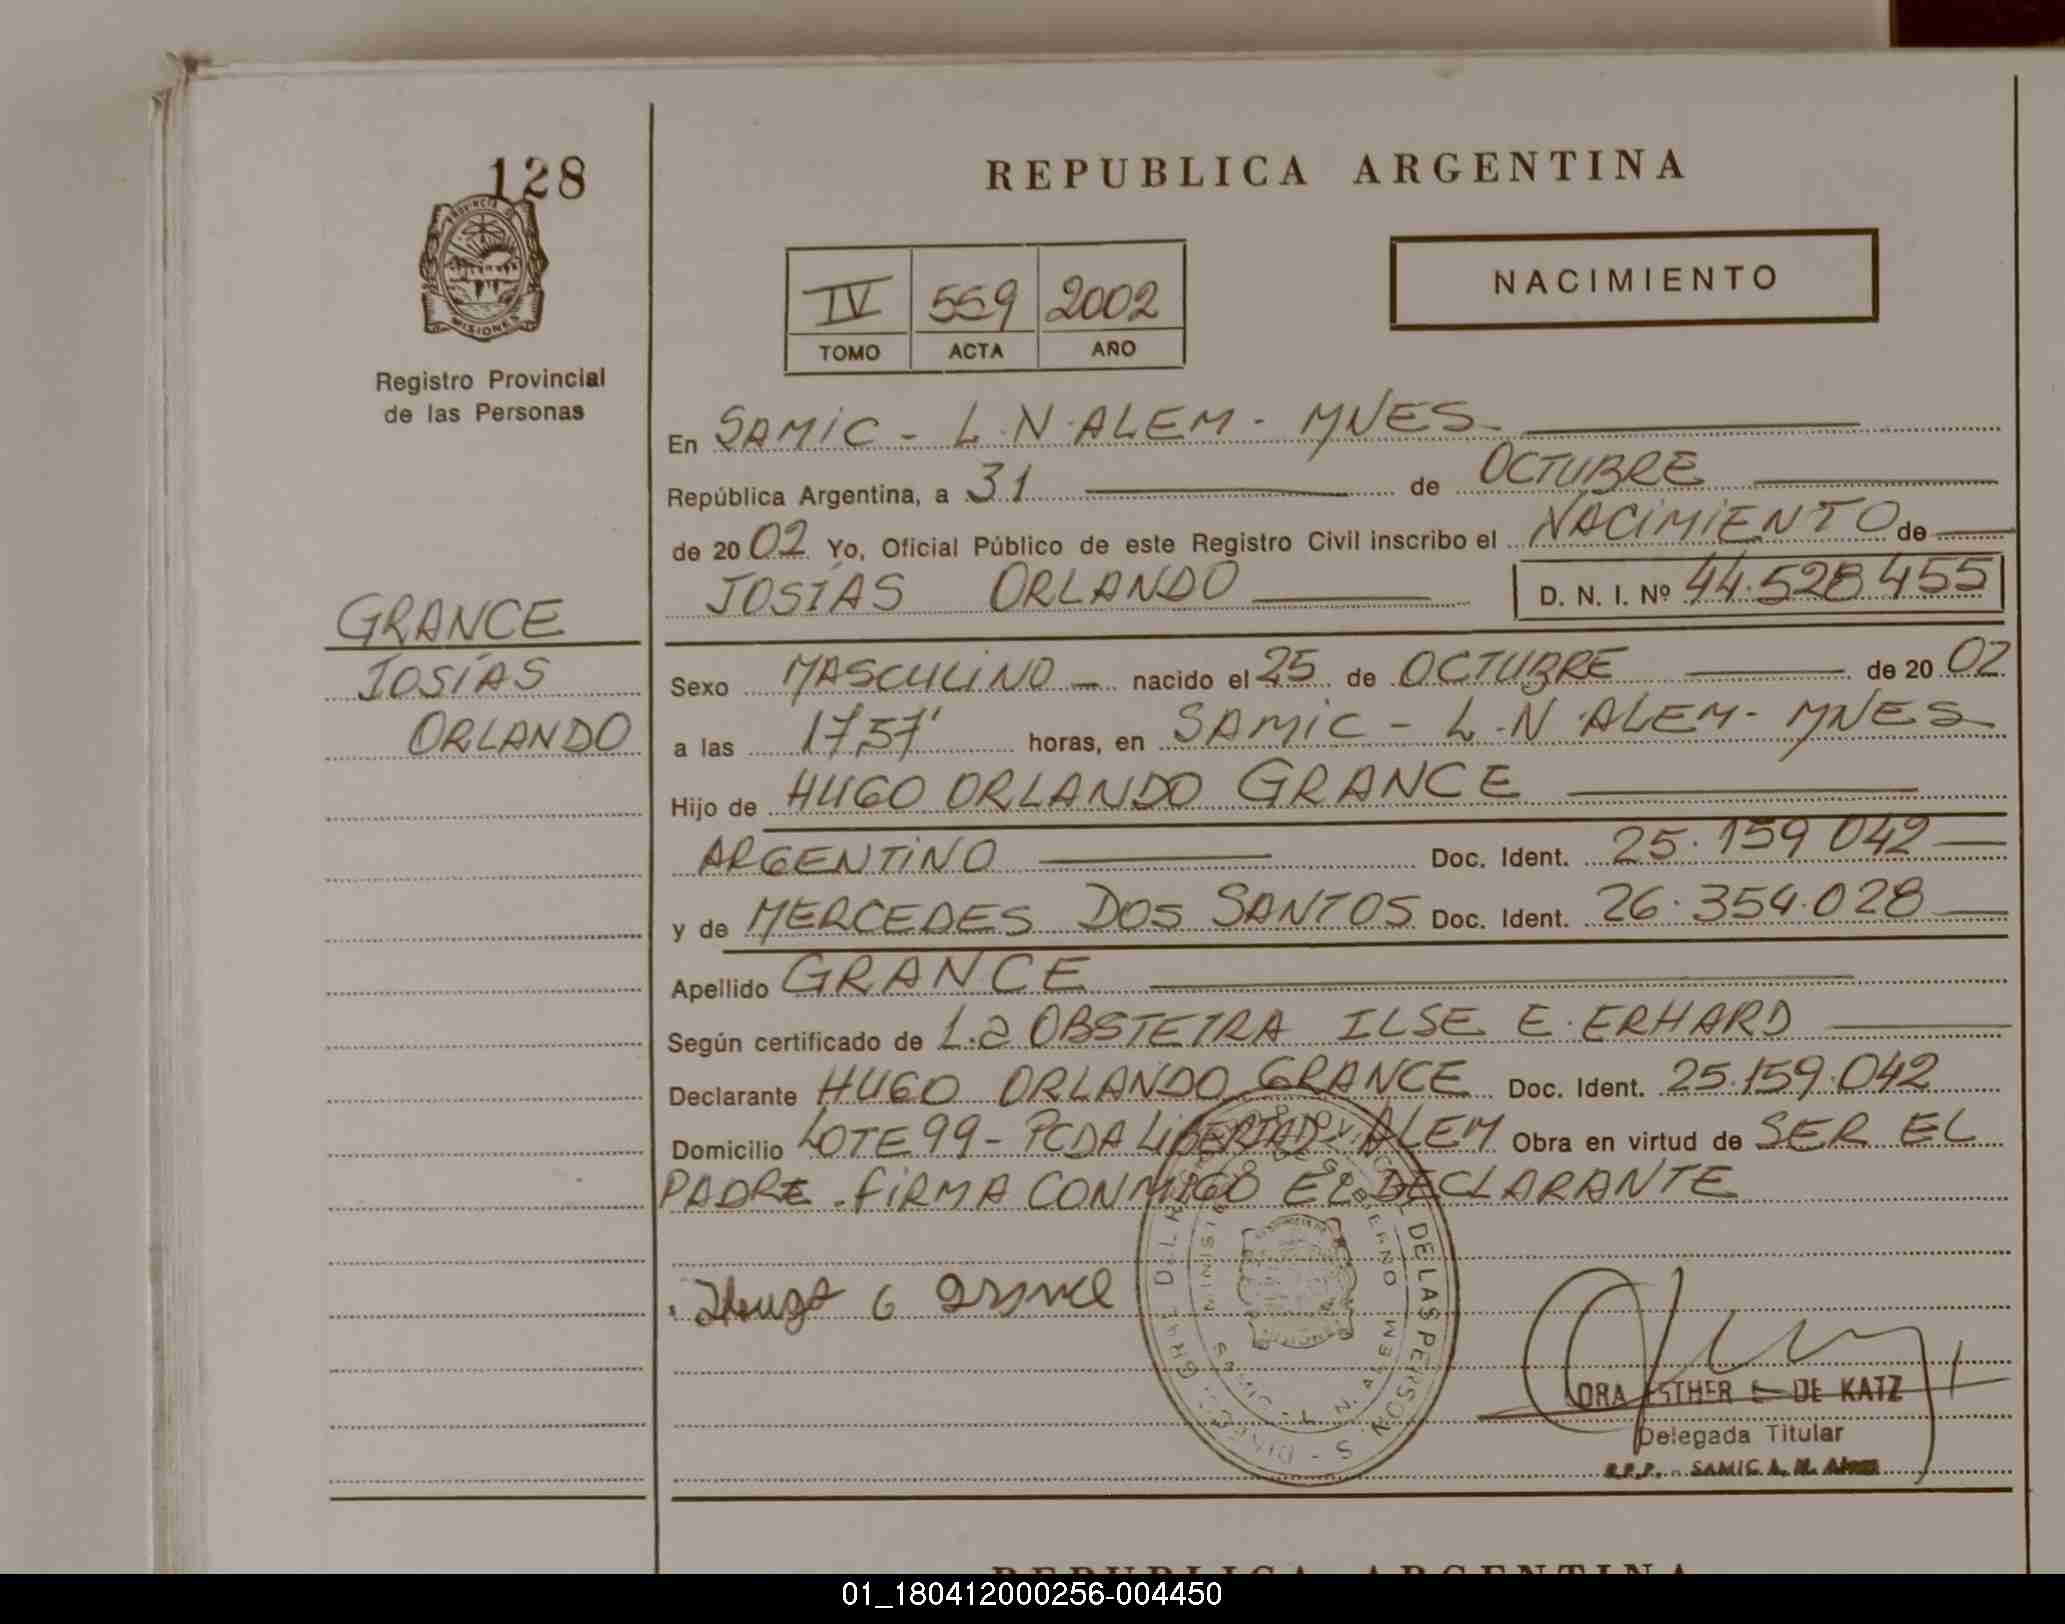 128
REPUBLICA ARGENTINA
PROVINCIA DE
MISIONES
NACIMIENTO
IV 559 2002
TOMO ACTA AÑO
Registro Provincial
de las Personas
En SAMIC - L.N. ALEM - MNES
República Argentina, a 31 de OCTUBRE
de 2002 Yo, Oficial Público de este Registro Civil inscribo el NACIMIENTO de
JOSÍAS ORLANDO D. N. I. Nº 44.528.455
GRANCE
JOSÍAS
ORLANDO
Sexo MASCULINO nacido el 25 de OCTUBRE de 2002
a las 17,57' horas, en SAMIC - L.N. ALEM - MNES
Hijo de HUGO ORLANDO GRANCE
ARGENTINO Doc. Ident. 25.159.042
y de MERCEDES DOS SANTOS Doc. Ident. 26.354.028
Apellido GRANCE
Según certificado de L.a OBSTETRA ILSE E. ERHARD
Declarante HUGO ORLANDO GRANCE Doc. Ident. 25.159.042
Domicilio LOTE 99 - PCDA LIBERTAD - ALEM Obra en virtud de SER EL
PADRE. FIRMA CONMIGO EL DECLARANTE
DE LAS PERSONAS
SAMIC - L. N. ALEM
DRA ESTHER DE KATZ
Delegada Titular
R.P.P. - SAMIC L. N. Alem
REPUBLICA ARGENTINA
01_180412000256-004450